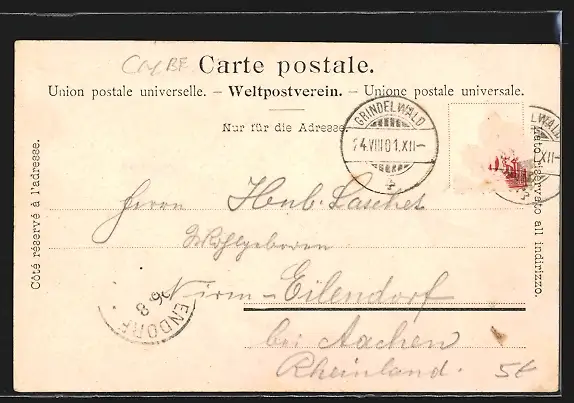 Carte postale.
Union postale universelle. – Weltpostverein. – Unione postale universale.
Nur für die Adresse.
GRINDELWALD
24.VIII.01.XII–
LWALD
.XII–
Côté réservé à l'adresse.
Lato riservato all' indirizzo.
Herrn Hub. Laschet
Wohlgeboren
Nirm – Eilendorf
bei Aachen
Rheinland.
ENDORF
26 8
5f